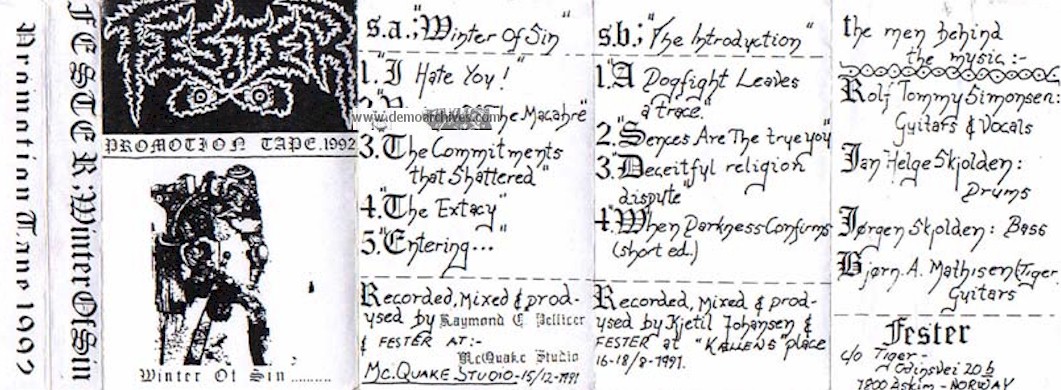 Promotion Tape 1992
FESTER: Winter Of Sin
FESTER
PROMOTION TAPE.1992
Winter Of Sin.........
s.a.;"Winter Of Sin"
1."I Hate You!"
www.demoarchives.com
The Macabre"
3."The Commitments
that Shattered"
4."The Extacy"
5."Entering..."
Recorded, Mixed & prod-
ysed by Raymond C. Pellicer
& FESTER AT:-
McQuake Studio
MC.QUAKE STUDIO-15/12-1991
s.b.;"The Introduction"
1."A Dogfight Leaves
a trace."
2."Sences Are The true you"
3."Deceitful religion
dispute"
4."When Darkness Confirms
(short ed.)
Recorded, Mixed & prod-
ysed by Kjetil Johansen &
FESTER at "KÆLLENS" place
16-18/8-1991.
the men behind
the music:-
Rolf Tommy Simonsen:
Guitars & Vocals
Jan Helge Skjolden:
Drums
Jørgen Skjolden: Bass
Bjørn. A. Mathisen (Tiger:
Guitars
Fester
c/o Tiger-
Odinsvei 20 b
1800 Askim - NORWAY